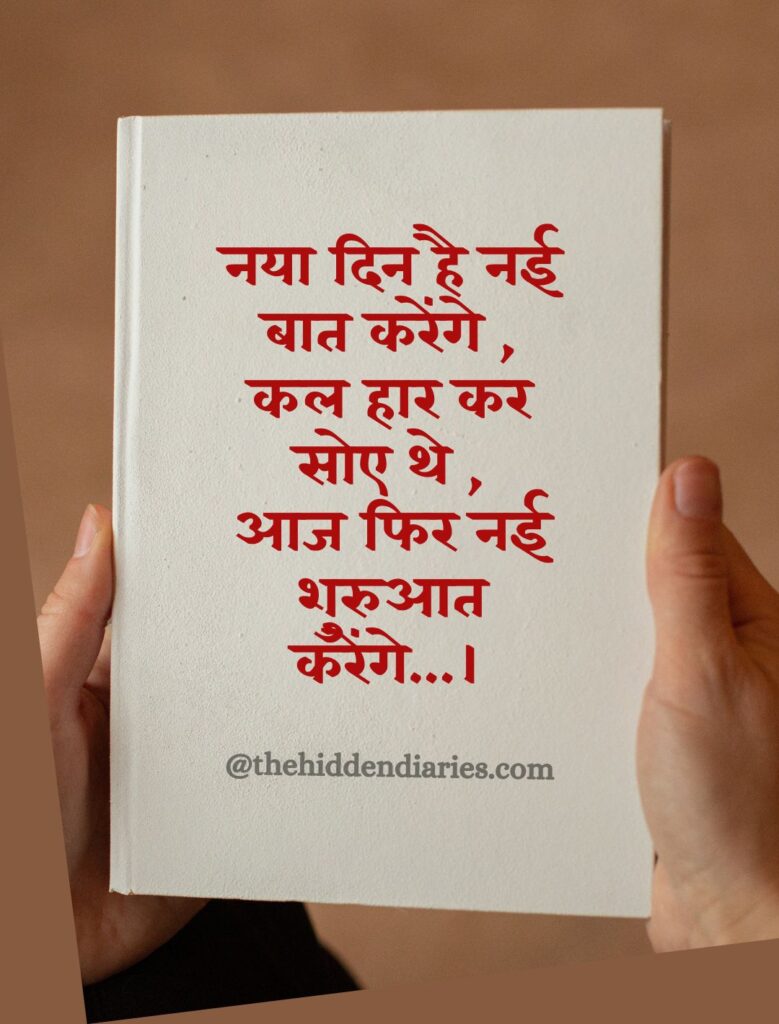 नया दिन है नई
बात करेंगे ,
कल हार कर
सोए थे ,
आज फिर नई
शुरुआत
करेंगे...।
@thehiddendiaries.com